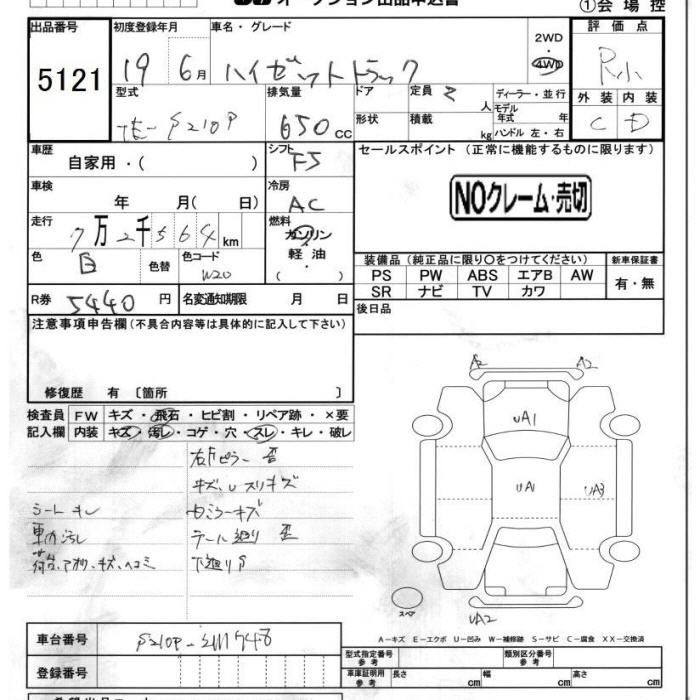 オークション出品申込書
①会場控
出品番号 初度登録年月 車名・グレード 評価点
5121 19年 6月 ハイゼットトラック 2WD 4WD
R
型式 排気量 ドア 定員 2人 ディーラー・並行 外装 内装
S210P 650cc 形状 積載 kg モデル年式 年 ハンドル 左・右 C D
車歴 シフト F5 セールスポイント (正常に機能するものに限ります)
自家用・( )
車検 年 月( 日) 冷房 AC
NOクレーム・売切
走行 7万2千564km 燃料 ガソリン・軽油・( )
色 白 色替 色コード W20
装備品 (純正品に限り〇をつけてください) 新車保証書
PS PW ABS エアB AW 有・無
SR ナビ TV カワ
R券 5440円 名変通知期限 月 日
後日品
注意事項申告欄(不具合内容等は具体的に記入して下さい)
修復歴 有 〔箇所 〕
検査員 FW キズ・飛石・ヒビ割・リペア跡・×要
記入欄 内装 キズ・汚レ・コゲ・穴・スレ・キレ・破レ
A2 A2
UA1
UA1 UA3
スペア
UA2
右Fピラー 歪
キズ、Uスリキズ
シートキレ
車内汚レ テール廻り 歪
荷台、アオリ、キズ、ヘコミ 下廻りS
A−キズ E−エクボ U−凹み W−補修跡 S−サビ C−腐食 XX−交換済
車台番号 S210P-
登録番号
型式指定番号 参考 類別区分番号 参考
車庫証明用 参考 長さ cm 幅 cm 高さ cm